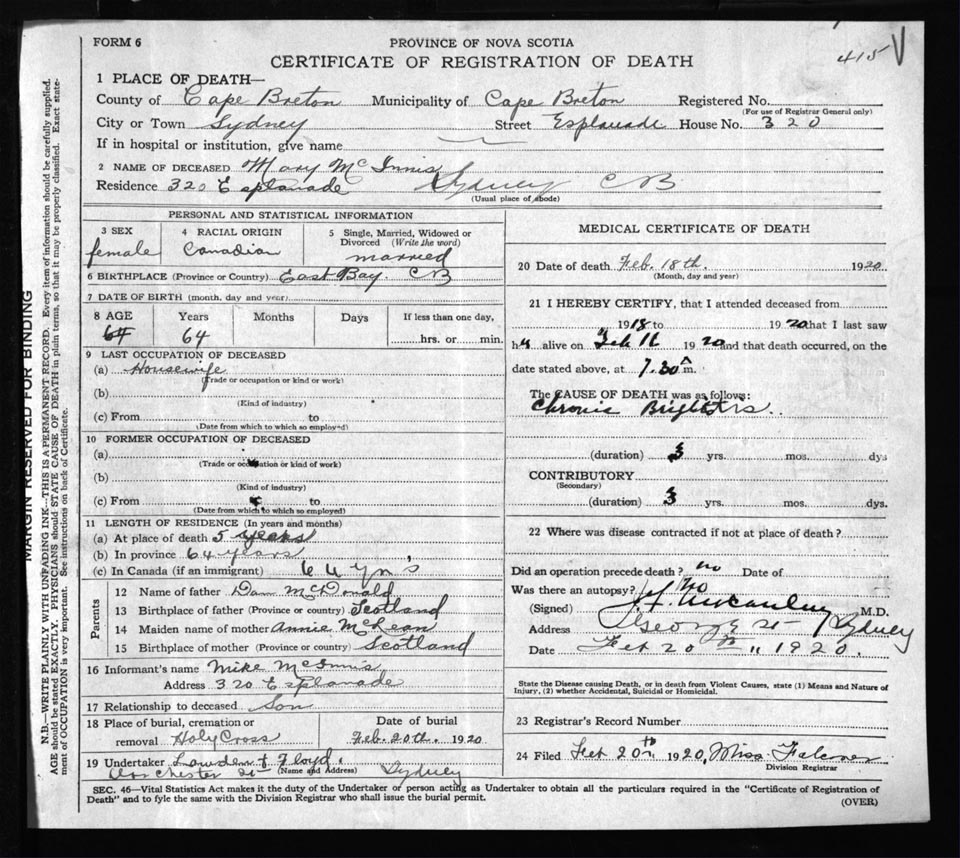 FORM 6
PROVINCE OF NOVA SCOTIA
CERTIFICATE OF REGISTRATION OF DEATH
415 V
1 PLACE OF DEATH—
County of Cape Breton Municipality of Cape Breton Registered No.
(For use of Registrar General only)
City or Town Sydney Street Esplanade House No. 320
If in hospital or institution, give name
2 NAME OF DECEASED Mary McInnis
Residence 320 Esplanade Sydney CB
(Usual place of abode)
PERSONAL AND STATISTICAL INFORMATION
3 SEX
female
4 RACIAL ORIGIN
Canadian
5 Single, Married, Widowed or Divorced (Write the word)
married
6 BIRTHPLACE (Province or Country) East Bay CB
7 DATE OF BIRTH (month, day and year)
8 AGE Years Months Days If less than one day,
64 64 hrs. or min.
9 LAST OCCUPATION OF DECEASED
(a) Housewife
(Trade or occupation or kind or work)
(b)
(Kind of industry)
(c) From to
(Date from which to which so employed)
10 FORMER OCCUPATION OF DECEASED
(a)
(Trade or occupation or kind of work)
(b)
(Kind of industry)
(c) From to
(Date from which to which so employed)
11 LENGTH OF RESIDENCE (In years and months)
(a) At place of death 5 years
(b) In province 64 years
(c) In Canada (if an immigrant) 64 yrs
Parents
12 Name of father Dan McDonald
13 Birthplace of father (Province or country) Scotland
14 Maiden name of mother Annie McLean
15 Birthplace of mother (Province or country) Scotland
16 Informant's name Mike McInnis
Address 320 Esplanade
17 Relationship to deceased Son
18 Place of burial, cremation or removal Holy Cross
Date of burial
Feb. 20th. 1920
19 Undertaker Lowden & Floyd.
(Name and Address)
Dorchester St Sydney
MEDICAL CERTIFICATE OF DEATH
20 Date of death Feb. 18th. 1920
(Month, day and year)
21 I HEREBY CERTIFY, that I attended deceased from
1918 to 1920 that I last saw
h alive on Feb 1920 and that death occurred, on the
date stated above, at 7.30 A m.
The CAUSE OF DEATH was as follows:
Chronic Brights
(duration) 3 yrs. mos. dys
CONTRIBUTORY
(Secondary)
(duration) 3 yrs. mos. dys.
22 Where was disease contracted if not at place of death?
Did an operation precede death? no Date of
Was there an autopsy? No
(Signed) McCauley M.D.
Address George St Sydney
Date Feb 20th 1920.
State the Disease causing Death, or in death from Violent Causes, state (1) Means and Nature of Injury, (2) whether Accidental, Suicidal or Homicidal.
23 Registrar's Record Number
24 Filed Feb 20th 1920, Miss
Division Registrar
SEC. 46—Vital Statistics Act makes it the duty of the Undertaker or person acting as Undertaker to obtain all the particulars required in the "Certificate of Registration of
Death" and to fyle the same with the Division Registrar who shall issue the burial permit.
(OVER)
MARGIN RESERVED FOR BINDING
N.B.—WRITE PLAINLY WITH UNFADING INK—THIS IS A PERMANENT RECORD. Every item of information should be carefully supplied.
AGE should be stated EXACTLY. PHYSICIANS should STATE CAUSE OF DEATH in plain terms, so that it may be properly classified. Exact state-
ment of OCCUPATION is very important. See instructions on back of Certificate.